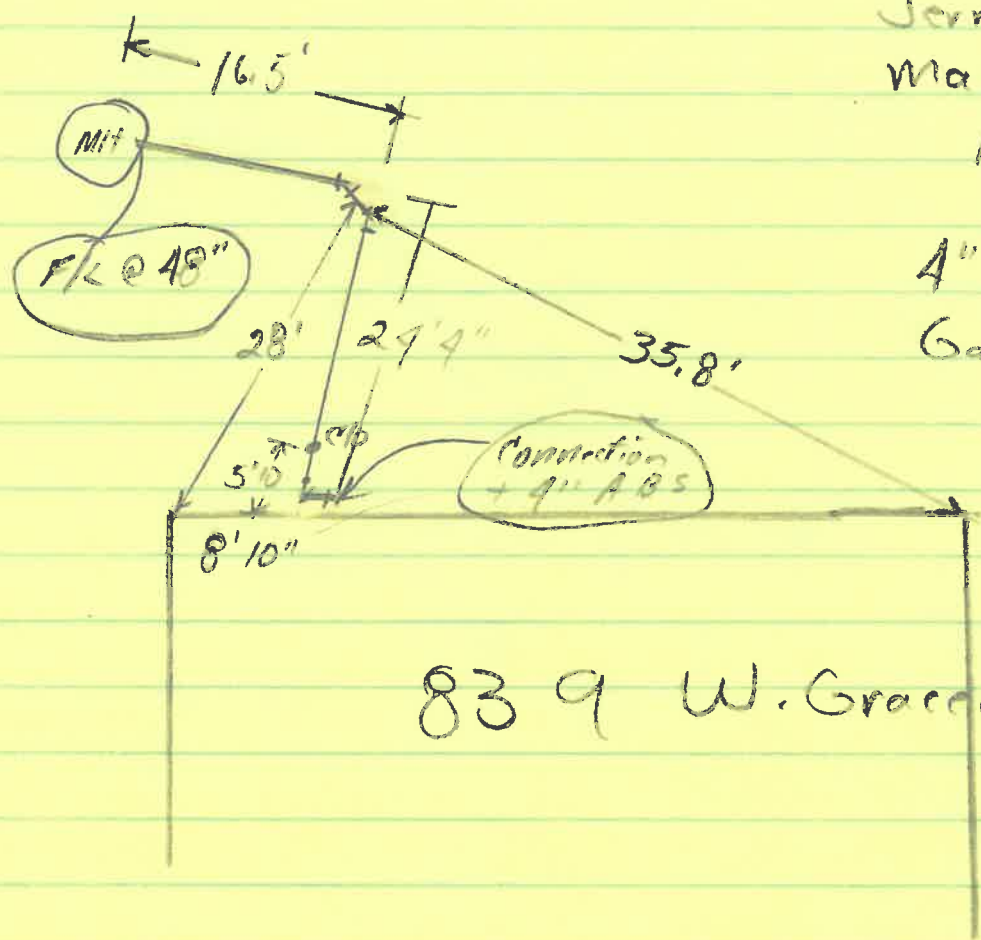 16.5'
Ma
MH
F/L @ 48"
4"
28'
24'4"
35.8'
C/O
5'10
Connection
4" ABS
8'10"
839 W. Grace